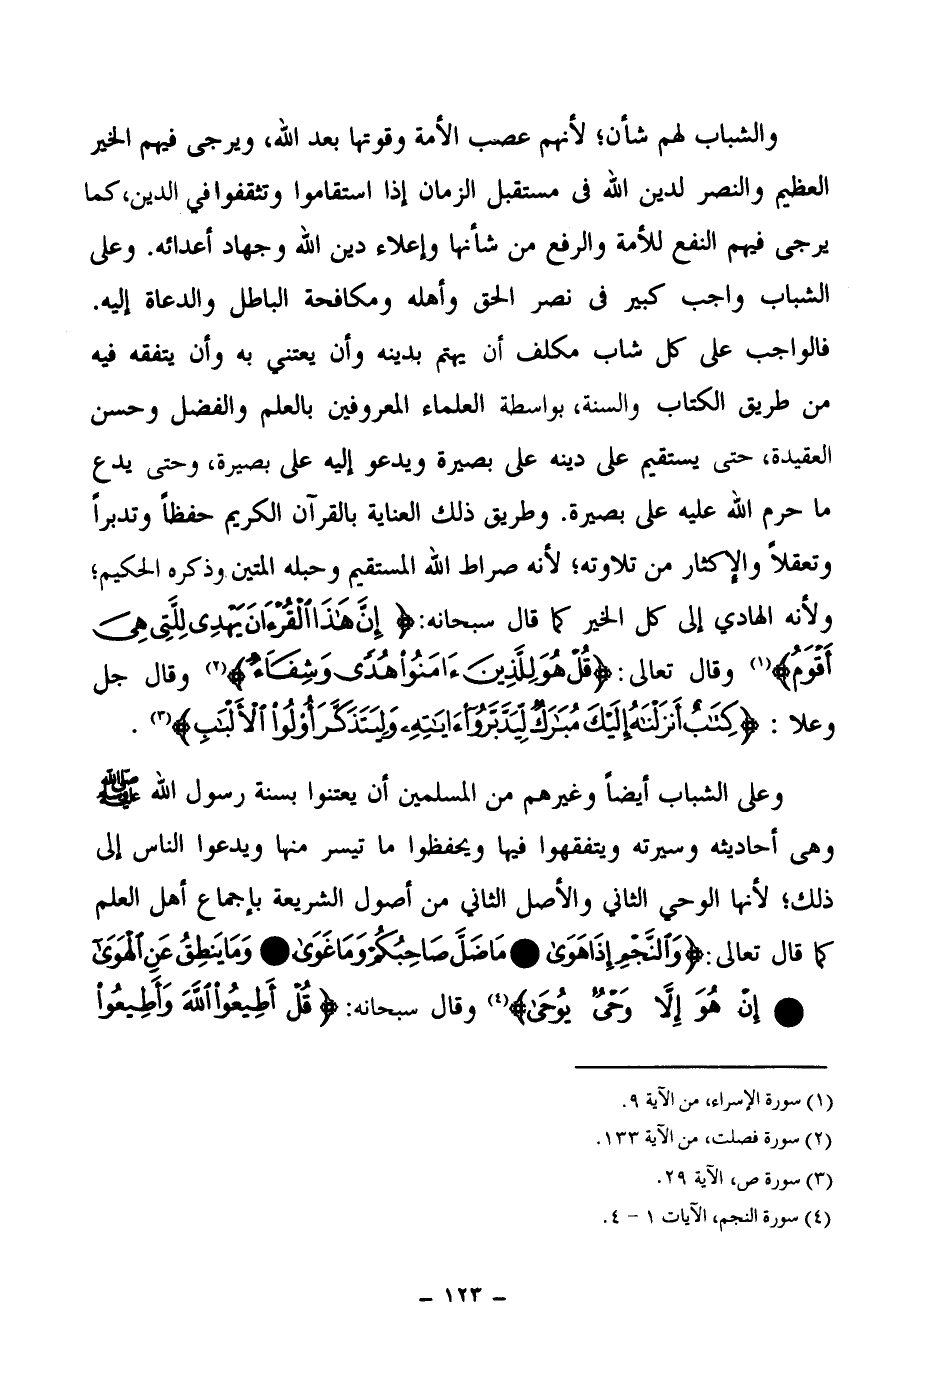 والشباب لهم شأن؛ لأنهم عصب الأمة وقوتها بعد الله، ويرجى فيهم الخير
العظيم والنصر لدين الله فى مستقبل الزمان إذا استقاموا وتثقفوا في الدين، كما
يرجى فيهم النفع للأمة والرفع من شأنها وإعلاء دين الله وجهاد أعدائه. وعلى
الشباب واجب كبير فى نصر الحق وأهله ومكافحة الباطل والدعاة إليه.
فالواجب على كل شاب مكلف أن يهتم بدينه وأن يعتني به وأن يتفقه فيه
من طريق الكتاب والسنة، بواسطة العلماء المعروفين بالعلم والفضل وحسن
العقيدة، حتى يستقيم على دينه على بصيرة ويدعو إليه على بصيرة، وحتى يدع
ما حرم الله عليه على بصيرة. وطريق ذلك العناية بالقرآن الكريم حفظاً وتدبراً
وتعقلاً والإكثار من تلاوته؛ لأنه صراط الله المستقيم وحبله المتين وذكره الحكيم؛
ولأنه الهادي إلى كل الخير كما قال سبحانه: ﴿ إِنَّ هَٰذَا ٱلْقُرْءَانَ يَهْدِى لِلَّتِى هِىَ
أَقْوَمُ﴾(١) وقال تعالى: ﴿قُلْ هُوَ لِلَّذِينَ ءَامَنُوا۟ هُدًى وَشِفَآءٌ﴾(٢) وقال جل
وعلا : ﴿كِتَٰبٌ أَنزَلْنَٰهُ إِلَيْكَ مُبَٰرَكٌ لِّيَدَّبَّرُوٓا۟ ءَايَٰتِهِۦ وَلِيَتَذَكَّرَ أُو۟لُوا۟ ٱلْأَلْبَٰبِ﴾(٣) .
وعلى الشباب أيضاً وغيرهم من المسلمين أن يعتنوا بسنة رسول الله ﷺ
وهى أحاديثه وسيرته ويتفقهوا فيها ويحفظوا ما تيسر منها ويدعوا الناس إلى
ذلك؛ لأنها الوحي الثاني والأصل الثاني من أصول الشريعة بإجماع أهل العلم
كما قال تعالى: ﴿وَٱلنَّجْمِ إِذَا هَوَىٰ ● مَا ضَلَّ صَاحِبُكُمْ وَمَا غَوَىٰ ● وَمَا يَنطِقُ عَنِ ٱلْهَوَىٰٓ
● إِنْ هُوَ إِلَّا وَحْىٌ يُوحَىٰ﴾(٤) وقال سبحانه: ﴿ قُلْ أَطِيعُوا۟ ٱللَّهَ وَأَطِيعُوا۟
(١) سورة الإسراء، من الآية ٩.
(٢) سورة فصلت، من الآية ١٣٣.
(٣) سورة ص، الآية ٢٩.
(٤) سورة النجم، الآيات ١ - ٤.
- ١٢٣ -